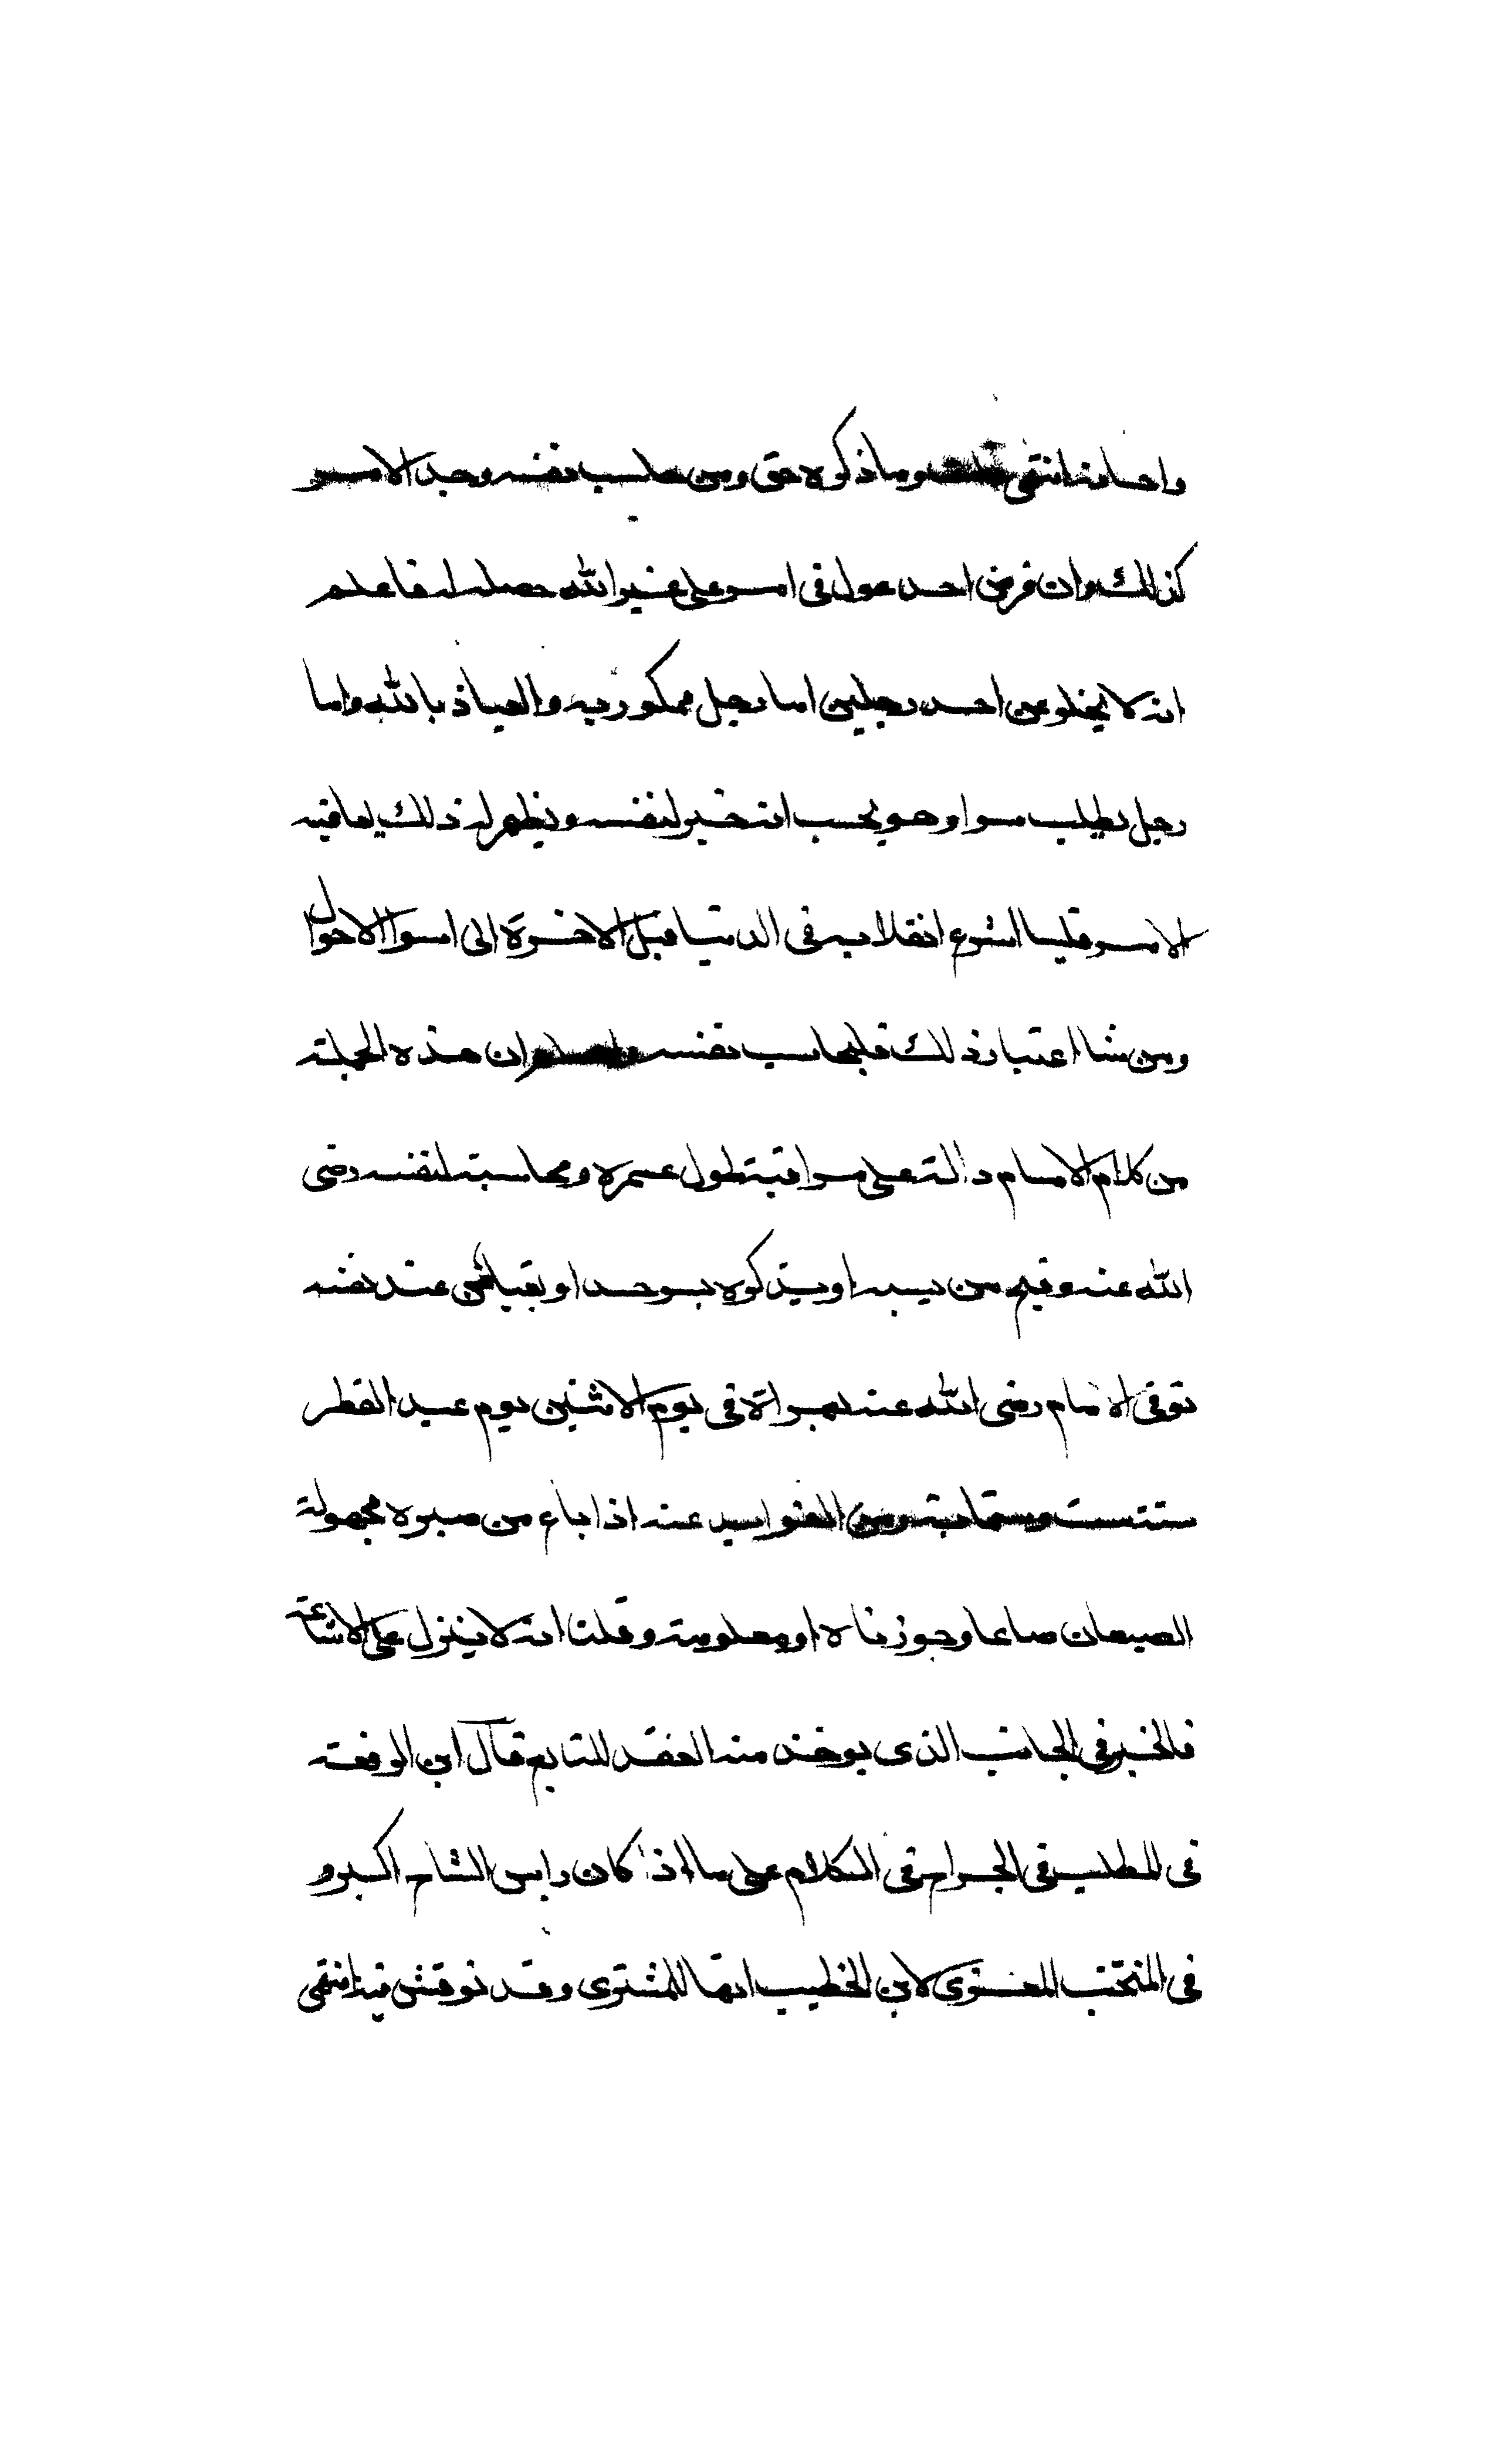 واحسانه انتهى قلت وما ذكره حق ومن حاسب نفسه وجد الامر
كذلك وان فرض احد عول في امر على غير الله حصل له فاعلم
انه لا يخلو عن احد رجلين اما رجل ممكور به والعياذ بالله واما
رجل يطلب سوا وهو يحسب انه خير لنفسه ويظهر له ذلك بعاقبه
الامر فليسا اسرع انقلابه في الدنيا قبل الاخرة الى اسوا الاحوال
ومن شا اعتبار ذلك فليحاسب نفسه واعلم ان هذه الجملة
من كلام الامام دالة على مراقبته طول عمره ومحاسبته لنفسه رضي
الله عنه وقبح من يسبه او يذكره بسو حد او بقيا شي عند نفسه
توفي الامام رضي الله عنه بهراة في يوم الاثنين يوم عيد الفطر
سنة ست وستماية ومن الفوايد عنه اذا باع من صبره مجهولة
الصيعان صاعا وجوزناه او معلومة وقلنا انه لا ينزل على الاشاعة
فالخير في الجانب الذي يوخذ منه العقد للبايع قال ابن الرفعة
في المطلب في الجراح في الكلام على ما اذا كان راس الشاج اكبر و
في المنتخب المعزى لابن الخطيب انها للمشترى وقد نوقش فيه انتهى